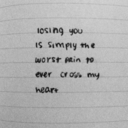 losing you
is simply the
worst pain to
ever cross my
heart